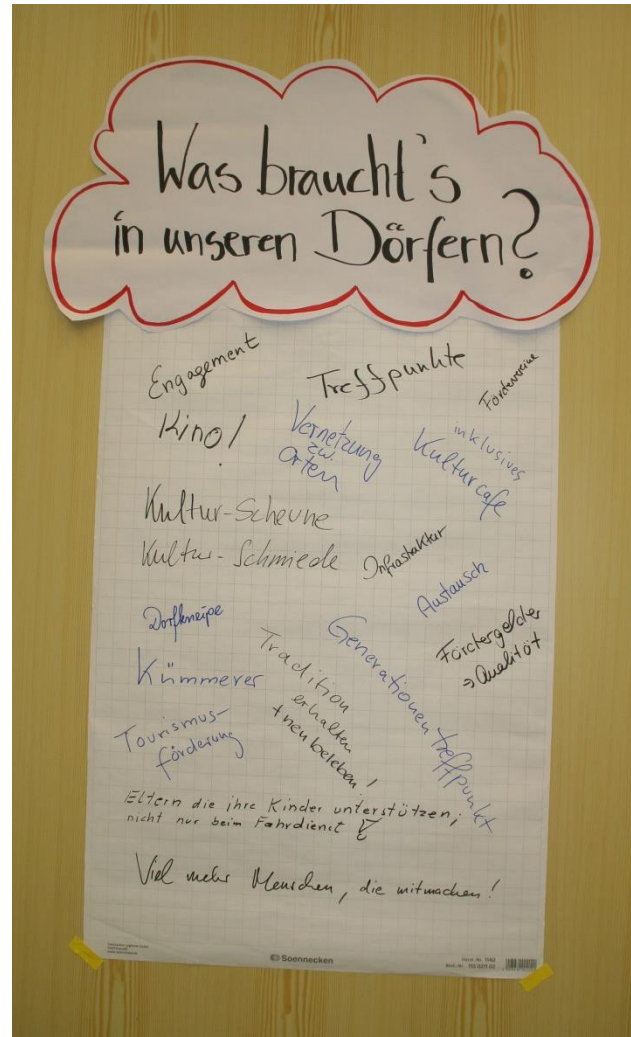 Was braucht's
in unseren Dörfern?
Engagement
Treffpunkte
Fördervereine
Kino!
Vernetzung
zw.
Orten
inklusives
Kulturcafe
Kultur-Scheune
Kultur-Schmiede
Infrastruktur
Austausch
Dorfkneipe
Kümmerer
Tradition
erhalten
+ neu beleben!
Generationentreffpunkt
Fördergelder
→ Qualität
Tourismus-
förderung
Eltern die ihre Kinder unterstützen,
nicht nur beim Fahrdienst
Viel mehr Menschen, die mitmachen!
Soennecken